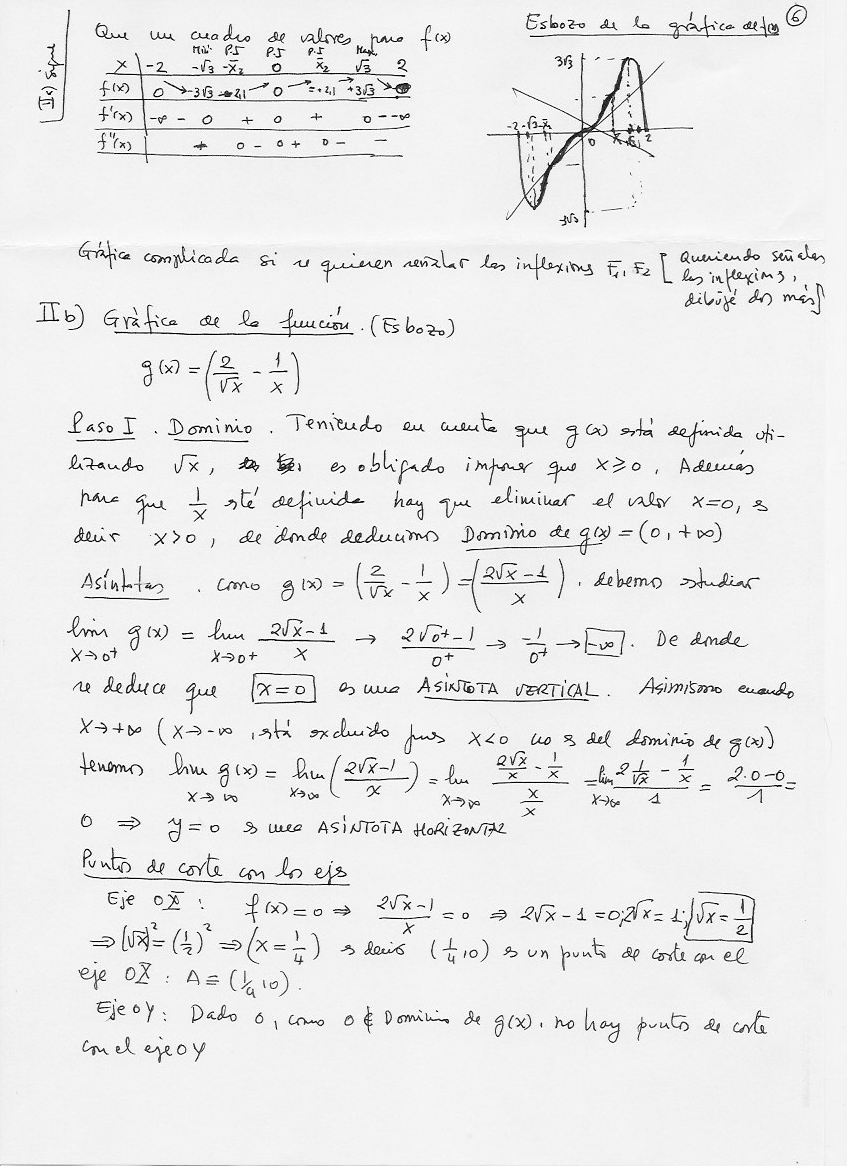 6
II) sigue
Que un cuadro de valores para f(x)
Esbozo de la gráfica de f(x)
Mín. P.I P.I P.I Max.
x -2 -√3 -x̄₂ 0 x̄₂ √3 2
f(x) 0 -3√3 -2,1 0 =+2,1 +3√3
f'(x) -∞ - 0 + 0 + 0 - -∞
f''(x) + 0 - 0 + 0 - -
3√3
-2 -√3 -x̄₂ 0 2
-3√3
Gráfica complicada si se quieren señalar las inflexions F₁, F₂ [Queriendo señalar
las inflexions,
dibujé dos más]
IIb) Gráfica de la función. (Esbozo)
g(x) = (2/√x - 1/x)
Paso I. Dominio. Teniendo en cuenta que g(x) está definida uti-
lizando √x, es obligado imponer que x≥0. Además
para que 1/x sté definida hay que eliminar el valor x=0, s
decir x>0, de donde deducimos Dominio de g(x) = (0, +∞)
Asíntotas. como g(x) = (2/√x - 1/x) = (2√x-1/x). debemos studiar
lim x→0⁺ g(x) = lim x→0⁺ 2√x-1/x → 2√0⁺-1/0⁺ → -1/0⁺ → -∞. De donde
se deduce que x=0 es una ASÍNTOTA VERTICAL. Asimismo cuando
x→+∞ (x→-∞, stá excluido pues x<0 no s del dominio de g(x))
tenemos lim x→∞ g(x) = lim x→∞ (2√x-1/x) = lim x→∞ (2√x/x - 1/x)/(x/x) = lim x→∞ (2 1/√x - 1/x)/1 = 2·0-0/1 =
0 ⇒ y=0 s una ASÍNTOTA HORIZONTAL
Puntos de corte con los ejs
Eje OX: f(x)=0 ⇒ 2√x-1/x = 0 ⇒ 2√x-1=0; 2√x=1; √x=1/2
⇒ (√x)² = (1/2)² ⇒ (x=1/4) s decir (1/4,0) s un punto de corte con el
eje OX: A ≡ (1/4,0).
Eje OY: Dado 0, como 0 ∉ Dominio de g(x). no hay puntos de corte
con el eje OY